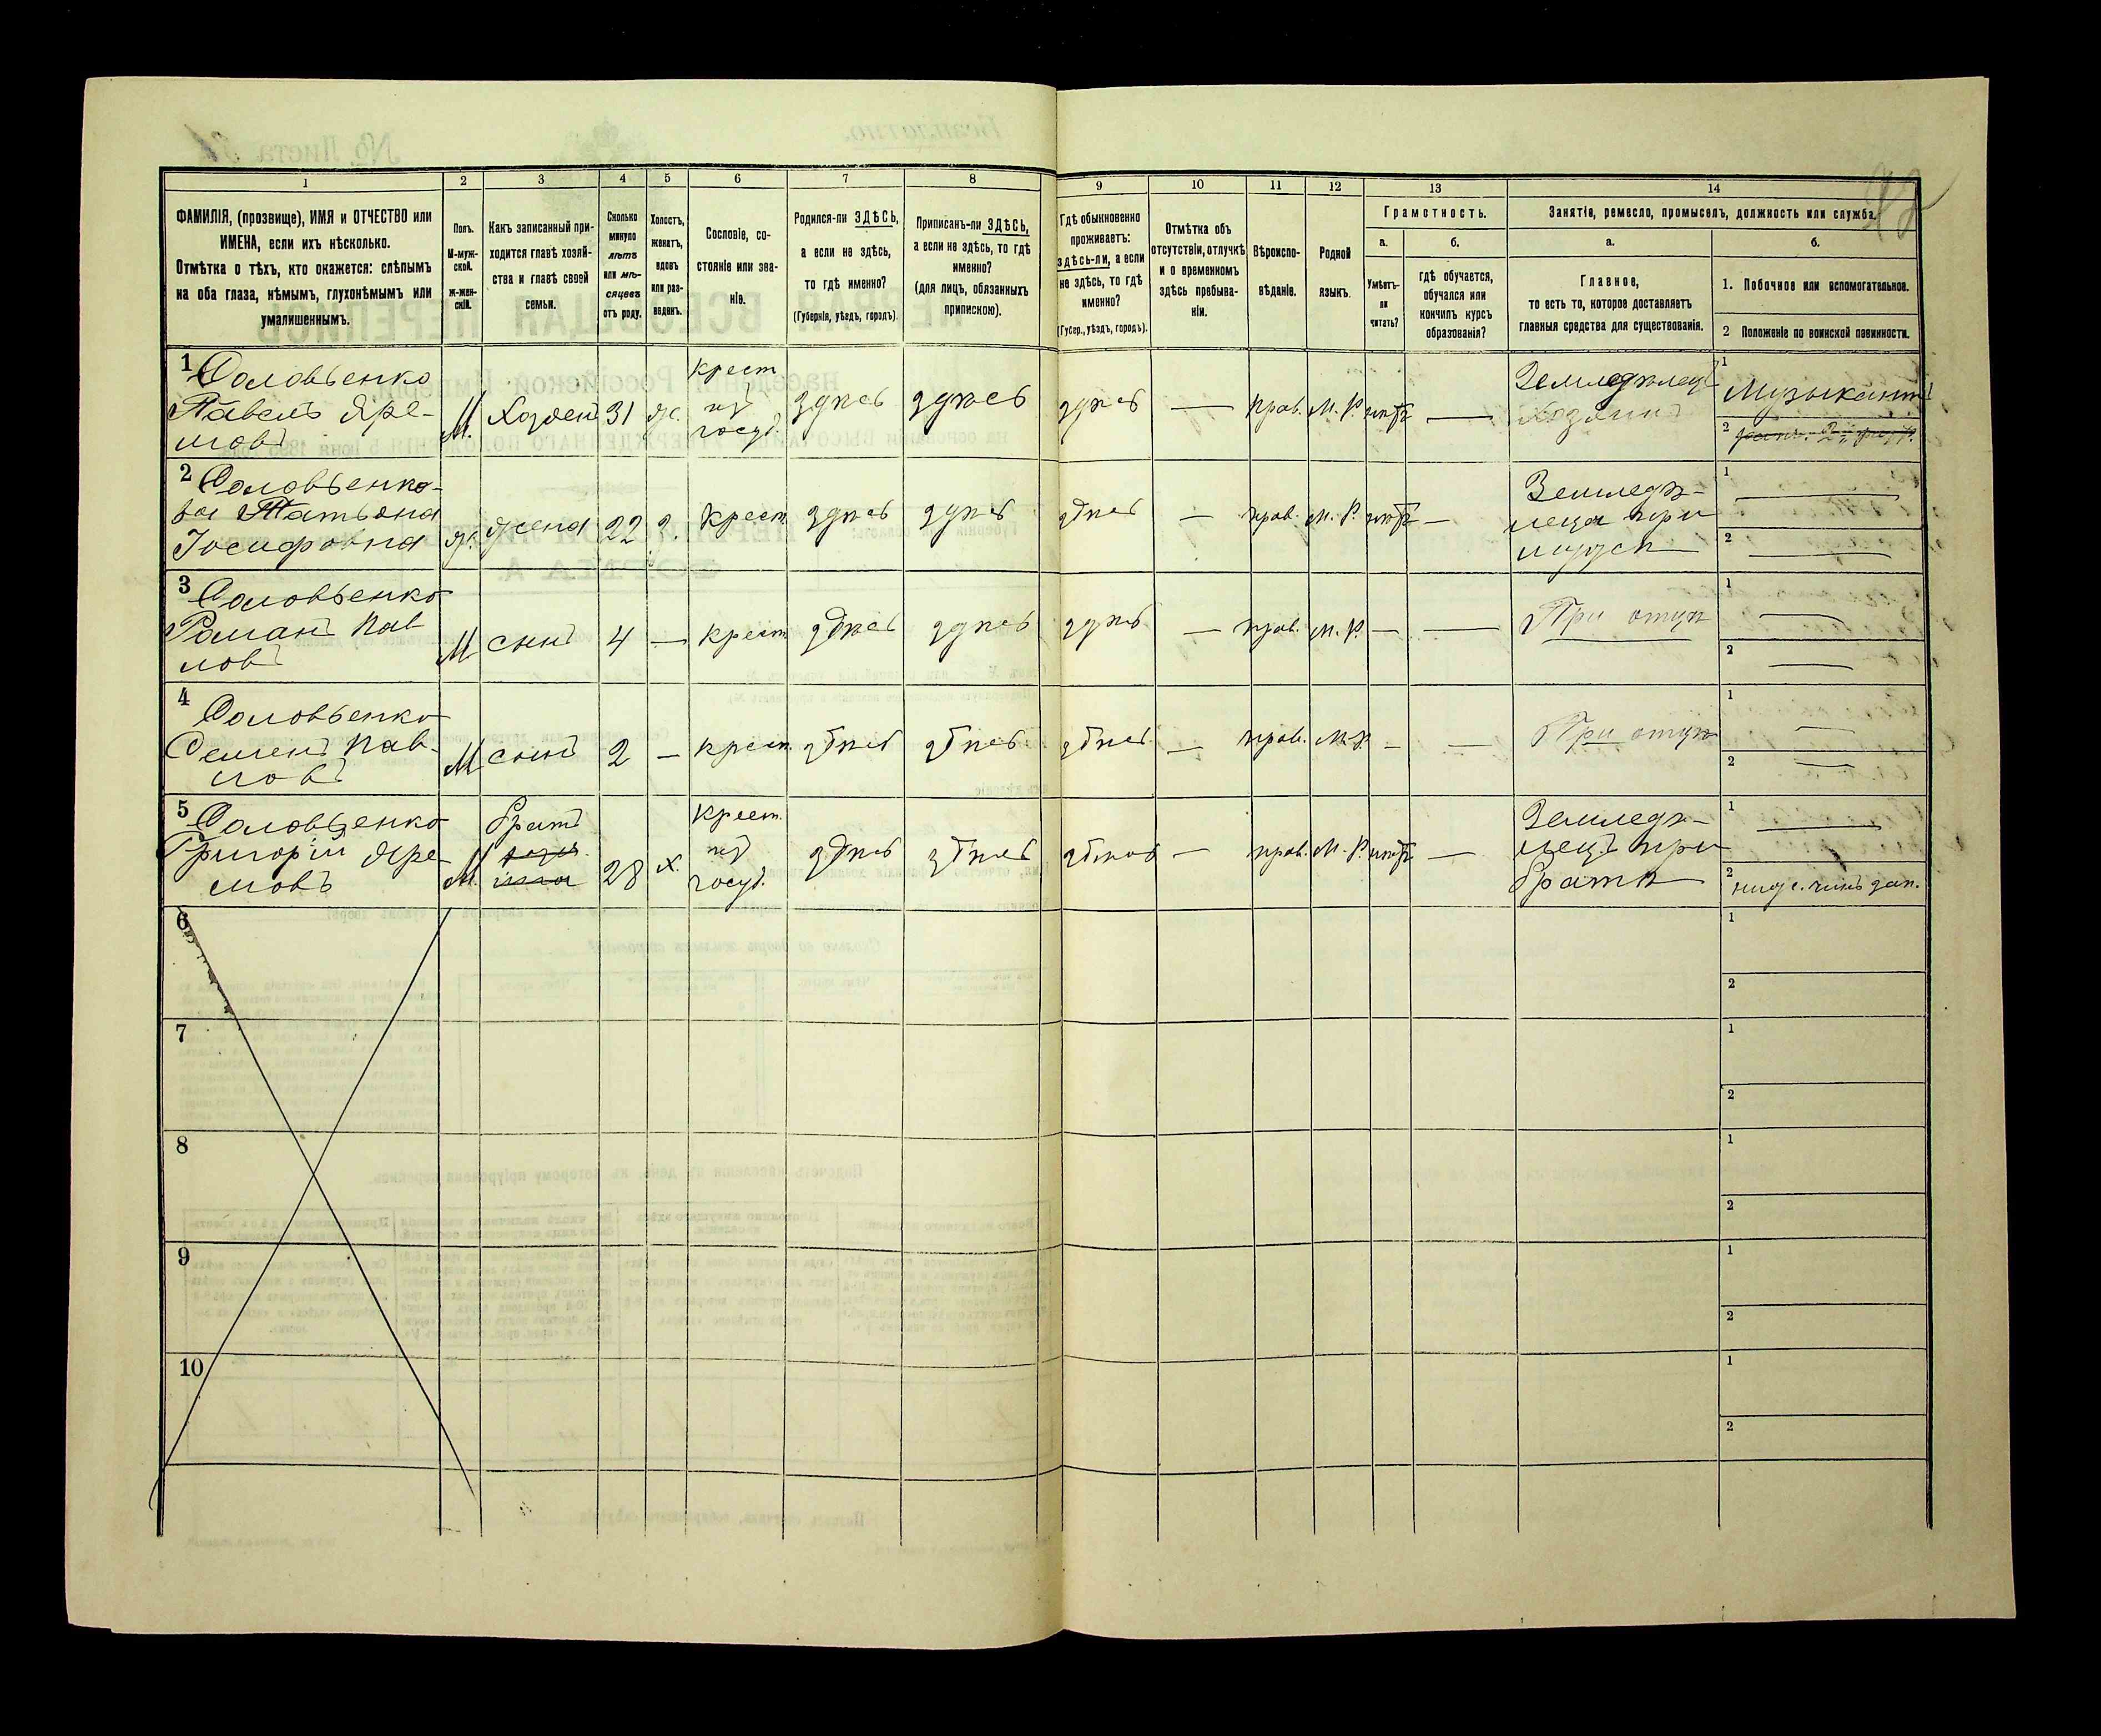 1
2
3
4
5
6
7
8
9
10
11
12
13
14
ФАМИЛІЯ, (прозвище), ИМЯ и ОТЧЕСТВО или
ИМЕНА, если ихъ нѣсколько.
Отмѣтка о тѣхъ, кто окажется: слѣпымъ
на оба глаза, нѣмымъ, глухонѣмымъ или
умалишеннымъ.
Полъ.
М-муж-
ской.
Ж-жен-
скій.
Какъ записанный при-
ходится главѣ хозяй-
ства и главѣ своей
семьи.
Сколько
минуло
лѣтъ
или мѣ-
сяцевъ
отъ роду.
Холостъ,
женатъ,
вдовъ
или раз-
веденъ.
Сословіе, со-
стояніе или зва-
ніе.
Родился-ли ЗДѢСЬ,
а если не здѣсь,
то гдѣ именно?
(Губернія, уѣздъ, городъ).
Приписанъ-ли ЗДѢСЬ,
а если не здѣсь, то гдѣ
именно?
(для лицъ, обязанныхъ
припискою).
Гдѣ обыкновенно
проживаетъ:
здѣсь-ли, а если
не здѣсь, то гдѣ
именно?
(Губер., уѣздъ, городъ).
Отмѣтка объ
отсутствіи, отлучкѣ
и о временномъ
здѣсь пребыва-
ніи.
Вѣроиспо-
вѣданіе.
Родной
языкъ.
Грамотность.
а.
Умѣетъ-
ли
читать?
б.
гдѣ обучается,
обучался или
кончилъ курсъ
образованія?
Занятіе, ремесло, промыселъ, должность или служба.
а.
Главное,
то есть то, которое доставляетъ
главныя средства для существованія.
б.
1. Побочное или вспомогательное.
2 Положеніе по воинской повинности.
1 Соловьенко
Павелъ Яре-
мовъ
М.
Хозяенъ
31
ж.
крест
изъ
госуд.
здѣсь
здѣсь
здѣсь
—
прав.
М. Р.
нѣтъ
—
Земледѣлецъ
Хозяинъ
1 Музыкантъ
2
2 Соловьенко-
ва Татьяна
Іосифовна
ж.
жена
22
з.
Крест.
здѣсь
здѣсь
здѣсь
—
прав.
М. Р.
нѣтъ
—
Земледѣ-
леца при
мужѣ
1 —
2 —
3 Соловьенко
Романъ Пав
ловъ
М
сынъ
4
—
крест
здѣсь
здѣсь
здѣсь
—
прав.
М. Р.
—
—
При отцѣ
1 —
2 —
4 Соловьенко
Семенъ Пав-
ловъ
М
сынъ
2
—
крест.
здѣсь
здѣсь
здѣсь
—
прав.
М. Р.
—
—
При отцѣ
1 —
2 —
5 Соловьенко
Григорій Яре-
мовъ
М.
братъ
28
х.
крест.
изъ
госуд.
здѣсь
здѣсь
здѣсь
—
прав.
М. Р.
нѣтъ
—
Земледѣ-
лецъ при
братѣ
1 —
2 ниж. чинъ зап.
6
1
2
7
1
2
8
1
2
9
1
2
10
1
2